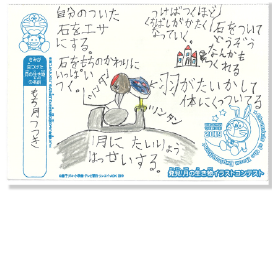 自分のついた
石をエサ
にする。
石をもちのかわりに
いっぱい
つく。
つけばつくほど
くちばしがかたく
なっていく。
石をついて
どうぞう
なんかも
つくれる
羽がたいかして
体にくっついてる
月に たいりょう
はっせいする。
もち月つつき
発見!月の生き物イラストコンテスト
2018